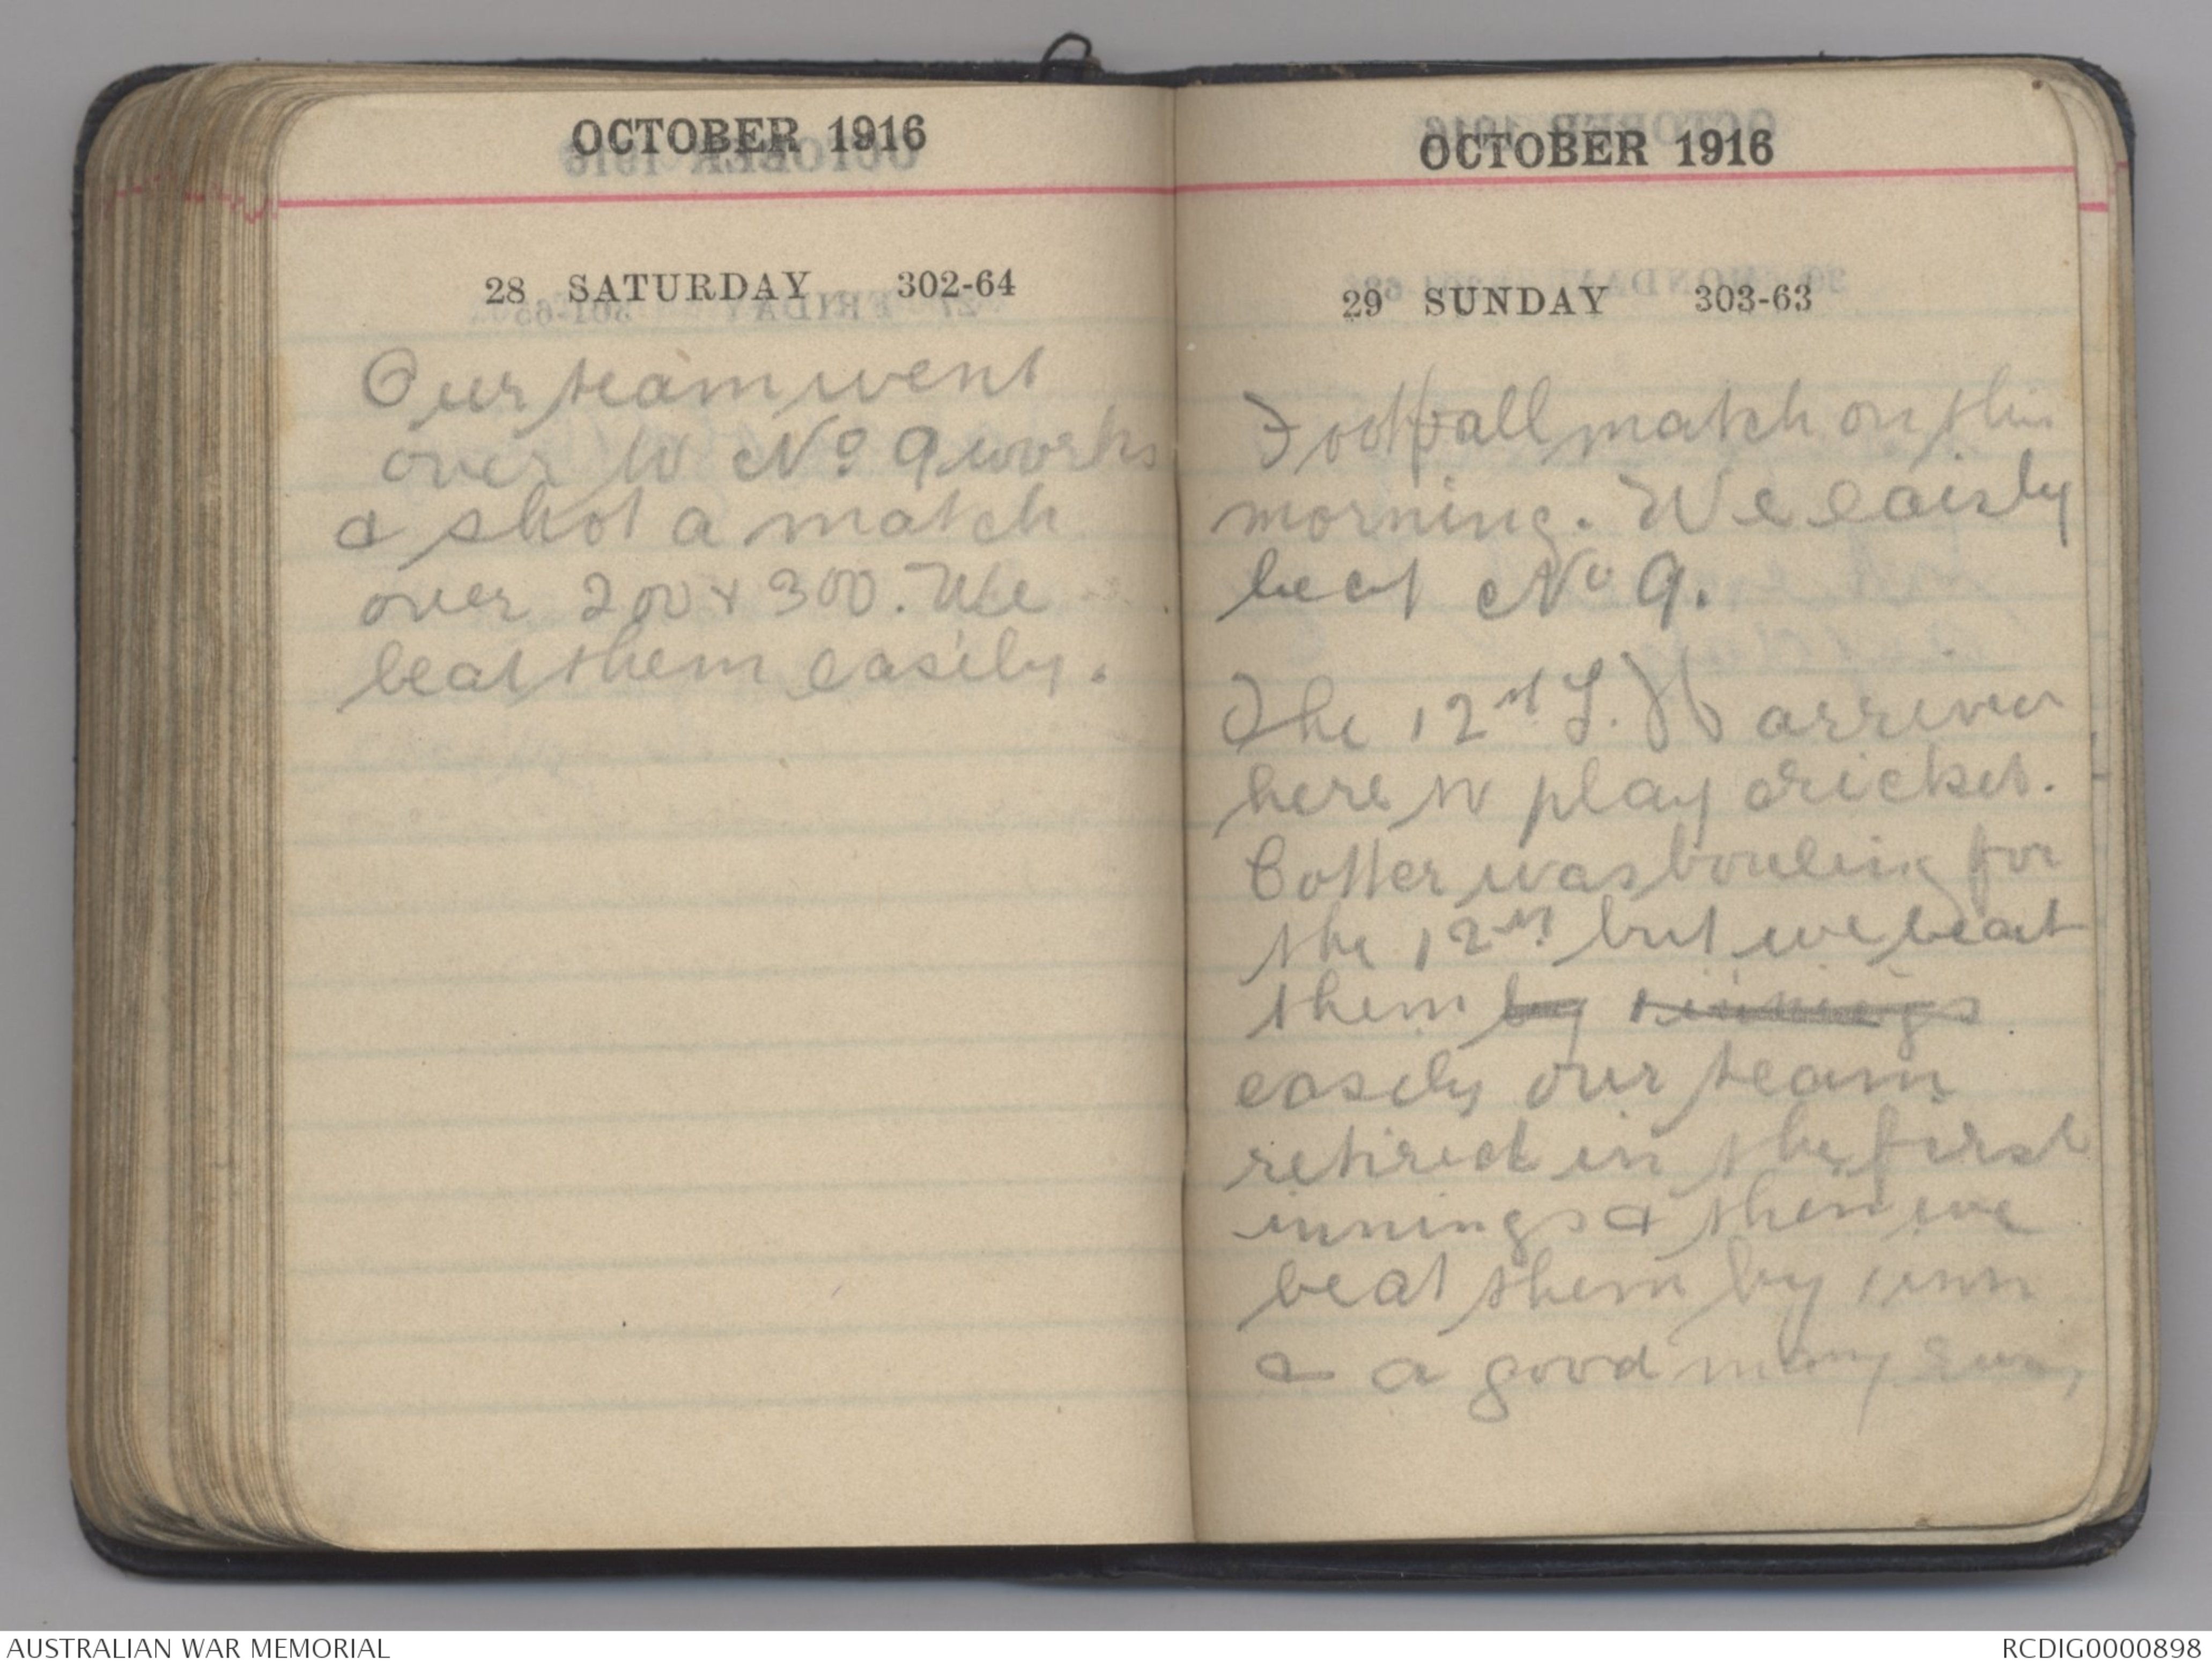 OCTOBER 1916
28 SATURDAY 302-64
Our team went
over to No 9 works
& shot a match
over 200 & 300. We
beat them easily.
OCTOBER 1916
29 SUNDAY 303-63
Football match on this
morning. We eaisly
beat No 9.
The 12st L.H arrived
here to play cricket.
Cotter was bowling for
the 12st but we beat
them by 1 innings
easily our team
retired in the first
innings & then we
beat them by 1 inn
& a good many runs
AUSTRALIAN WAR MEMORIAL
RCDIG0000898